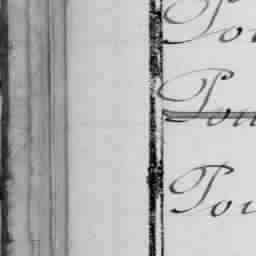 Pou
Pou
Pou